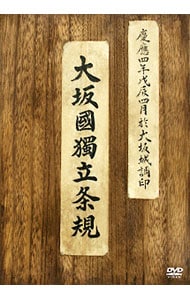 慶應四年戊辰四月於大坂城調印
大坂國獨立条規
DVD